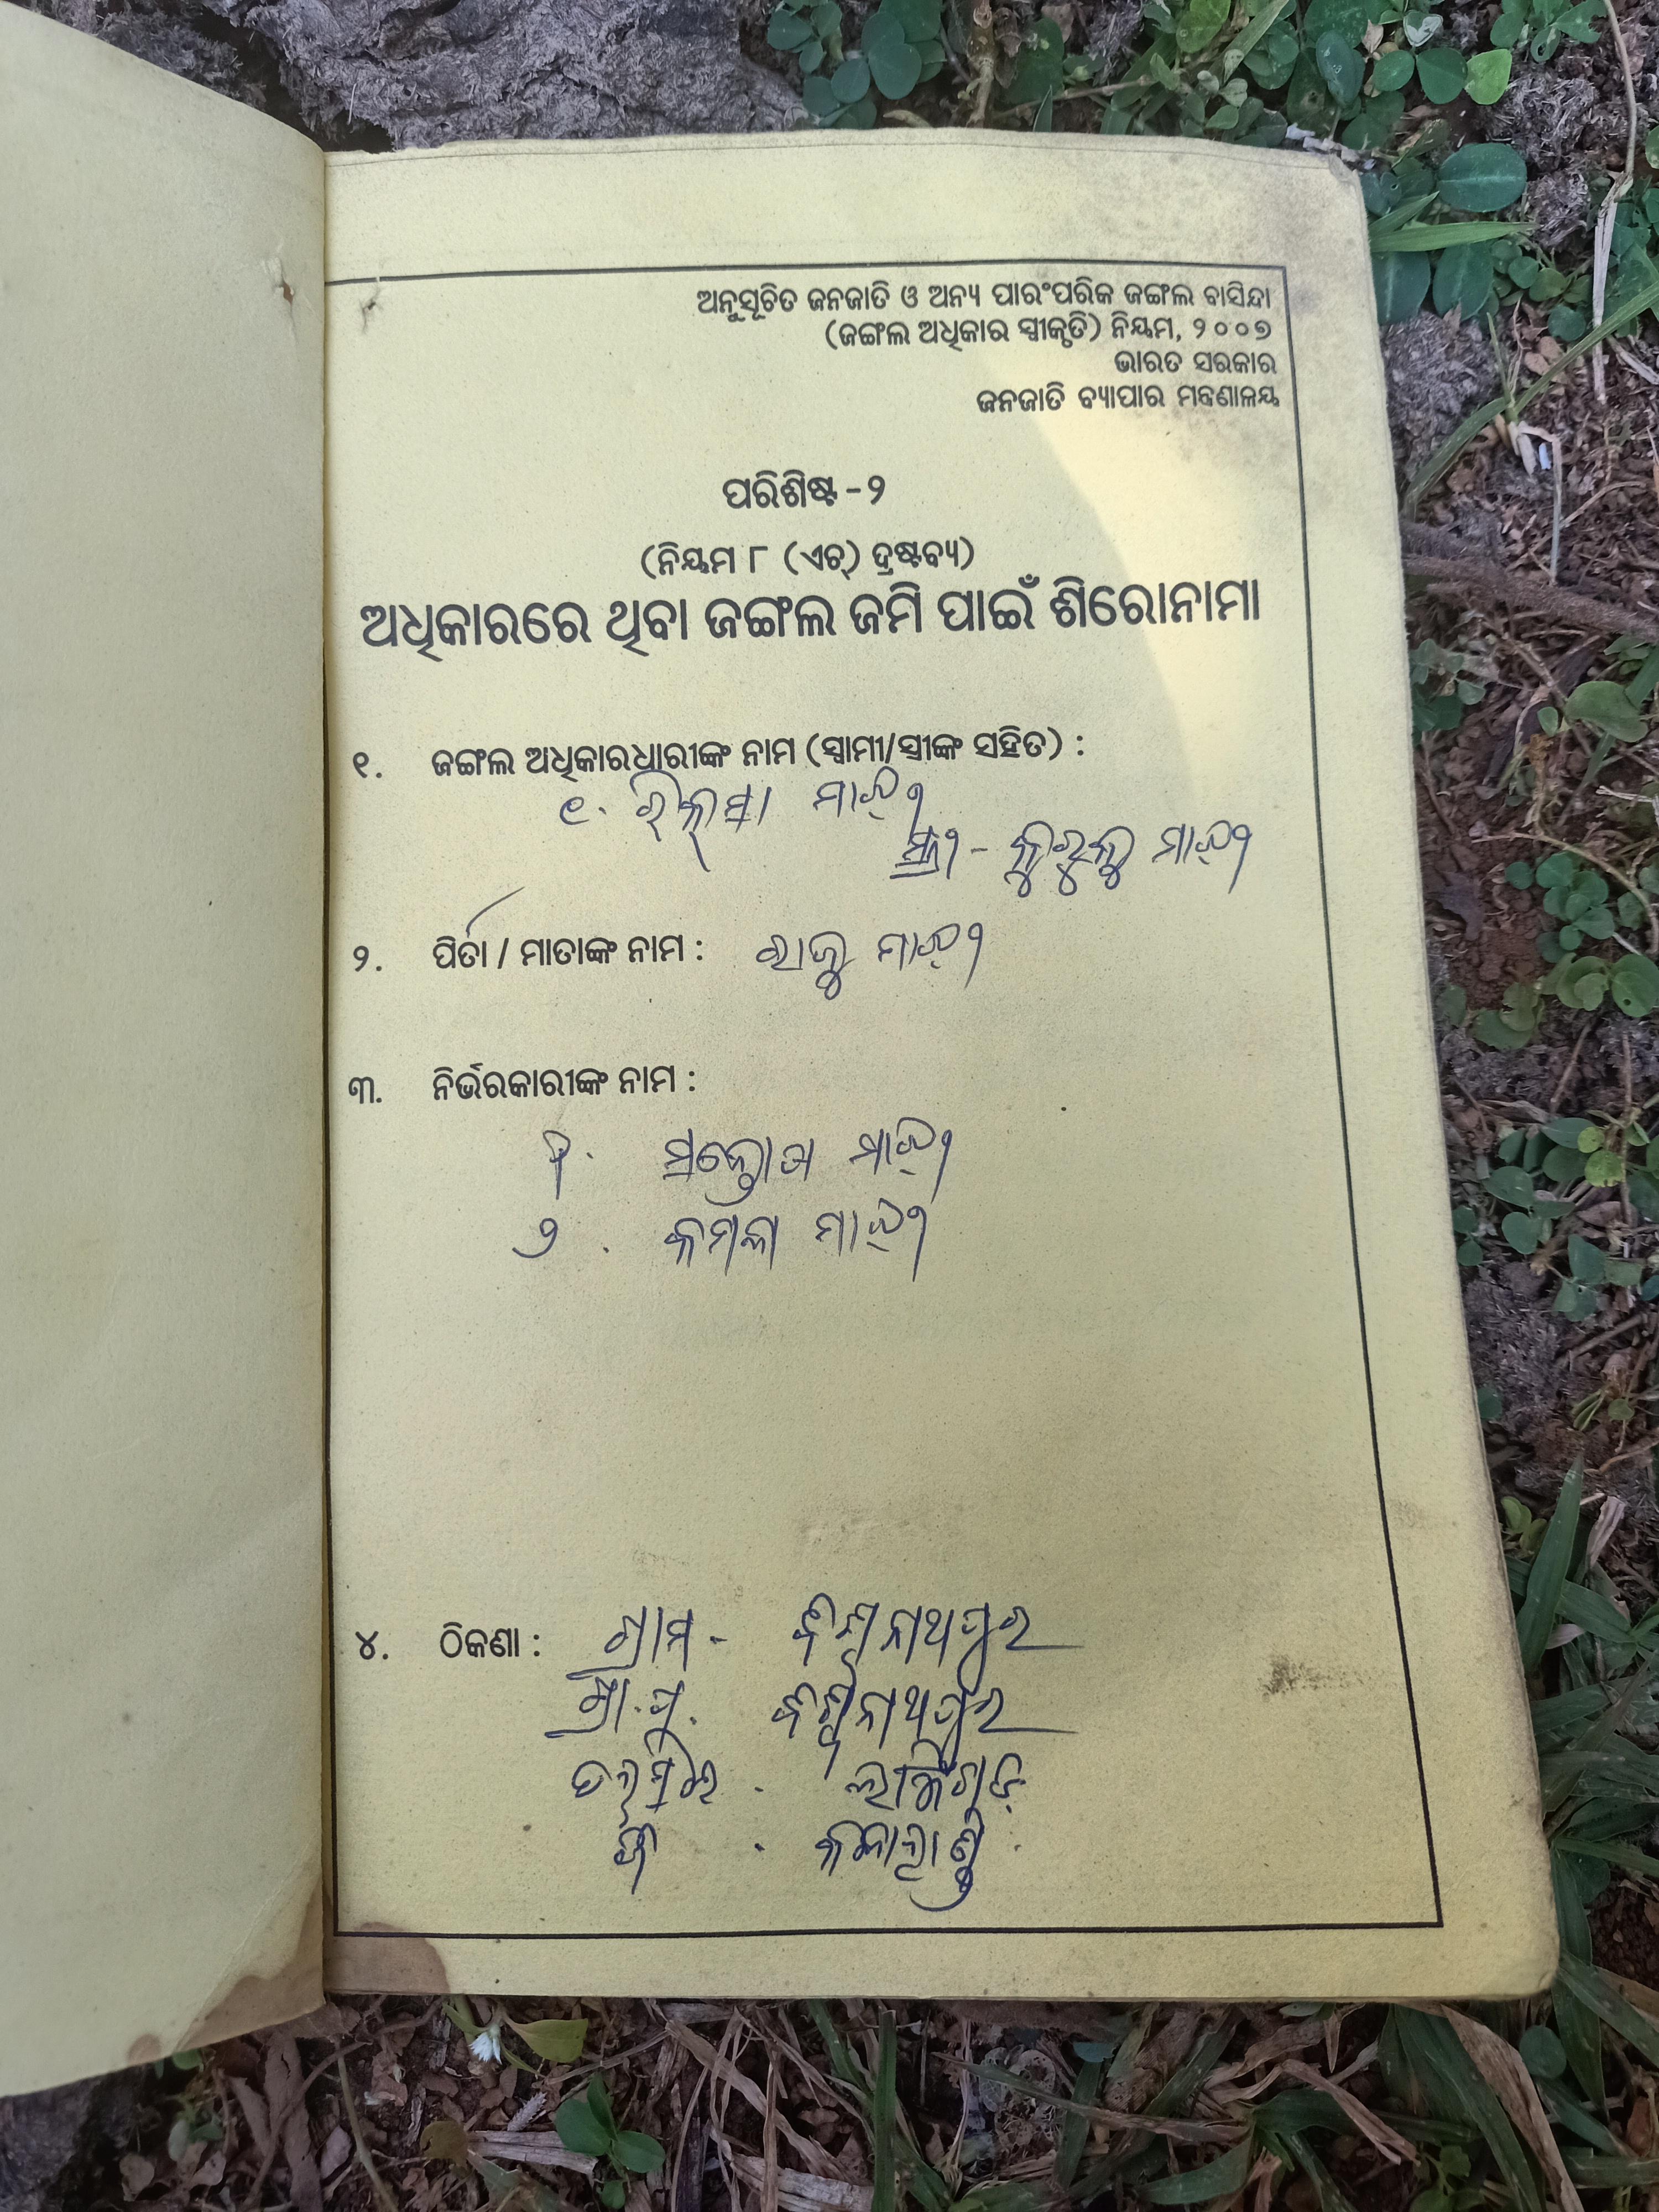 ଅନୁସୂଚିତ ଜନଜାତି ଓ ଅନ୍ୟ ପାରଂପରିକ ଜଙ୍ଗଲ ବାସିନ୍ଦା
(ଜଙ୍ଗଲ ଅଧିକାର ସ୍ୱୀକୃତି) ନିୟମ, ୨୦୦୭
ଭାରତ ସରକାର
ଜନଜାତି ବ୍ୟାପାର ମନ୍ତ୍ରଣାଳୟ
ପରିଶିଷ୍ଟ - ୨
(ନିୟମ ୮ (ଏଚ୍) ଦ୍ରଷ୍ଟବ୍ୟ)
ଅଧିକାରରେ ଥିବା ଜଙ୍ଗଲ ଜମି ପାଇଁ ଶିରୋନାମା
୧. ଜଙ୍ଗଲ ଅଧିକାରଧାରୀଙ୍କ ନାମ (ସ୍ୱାମୀ/ସ୍ତ୍ରୀଙ୍କ ସହିତ) :
୧. ମାଝୀ
ସ୍ତ୍ରୀ - ମାଝୀ
୨. ପିତା / ମାତାଙ୍କ ନାମ : ରାଜୁ ମାଝୀ
୩. ନିର୍ଭରକାରୀଙ୍କ ନାମ :
୧. ମାଝୀ
୨. କମଳ ମାଝୀ
୪. ଠିକଣା : ଗ୍ରାମ - ବିଶ୍ୱନାଥପୁର
ଗ୍ରା.ପ. ବିଶ୍ୱନାଥପୁର
ତହସିଲ . ଲାଞ୍ଜିଗଡ଼
ଜି . କଳାହାଣ୍ଡି